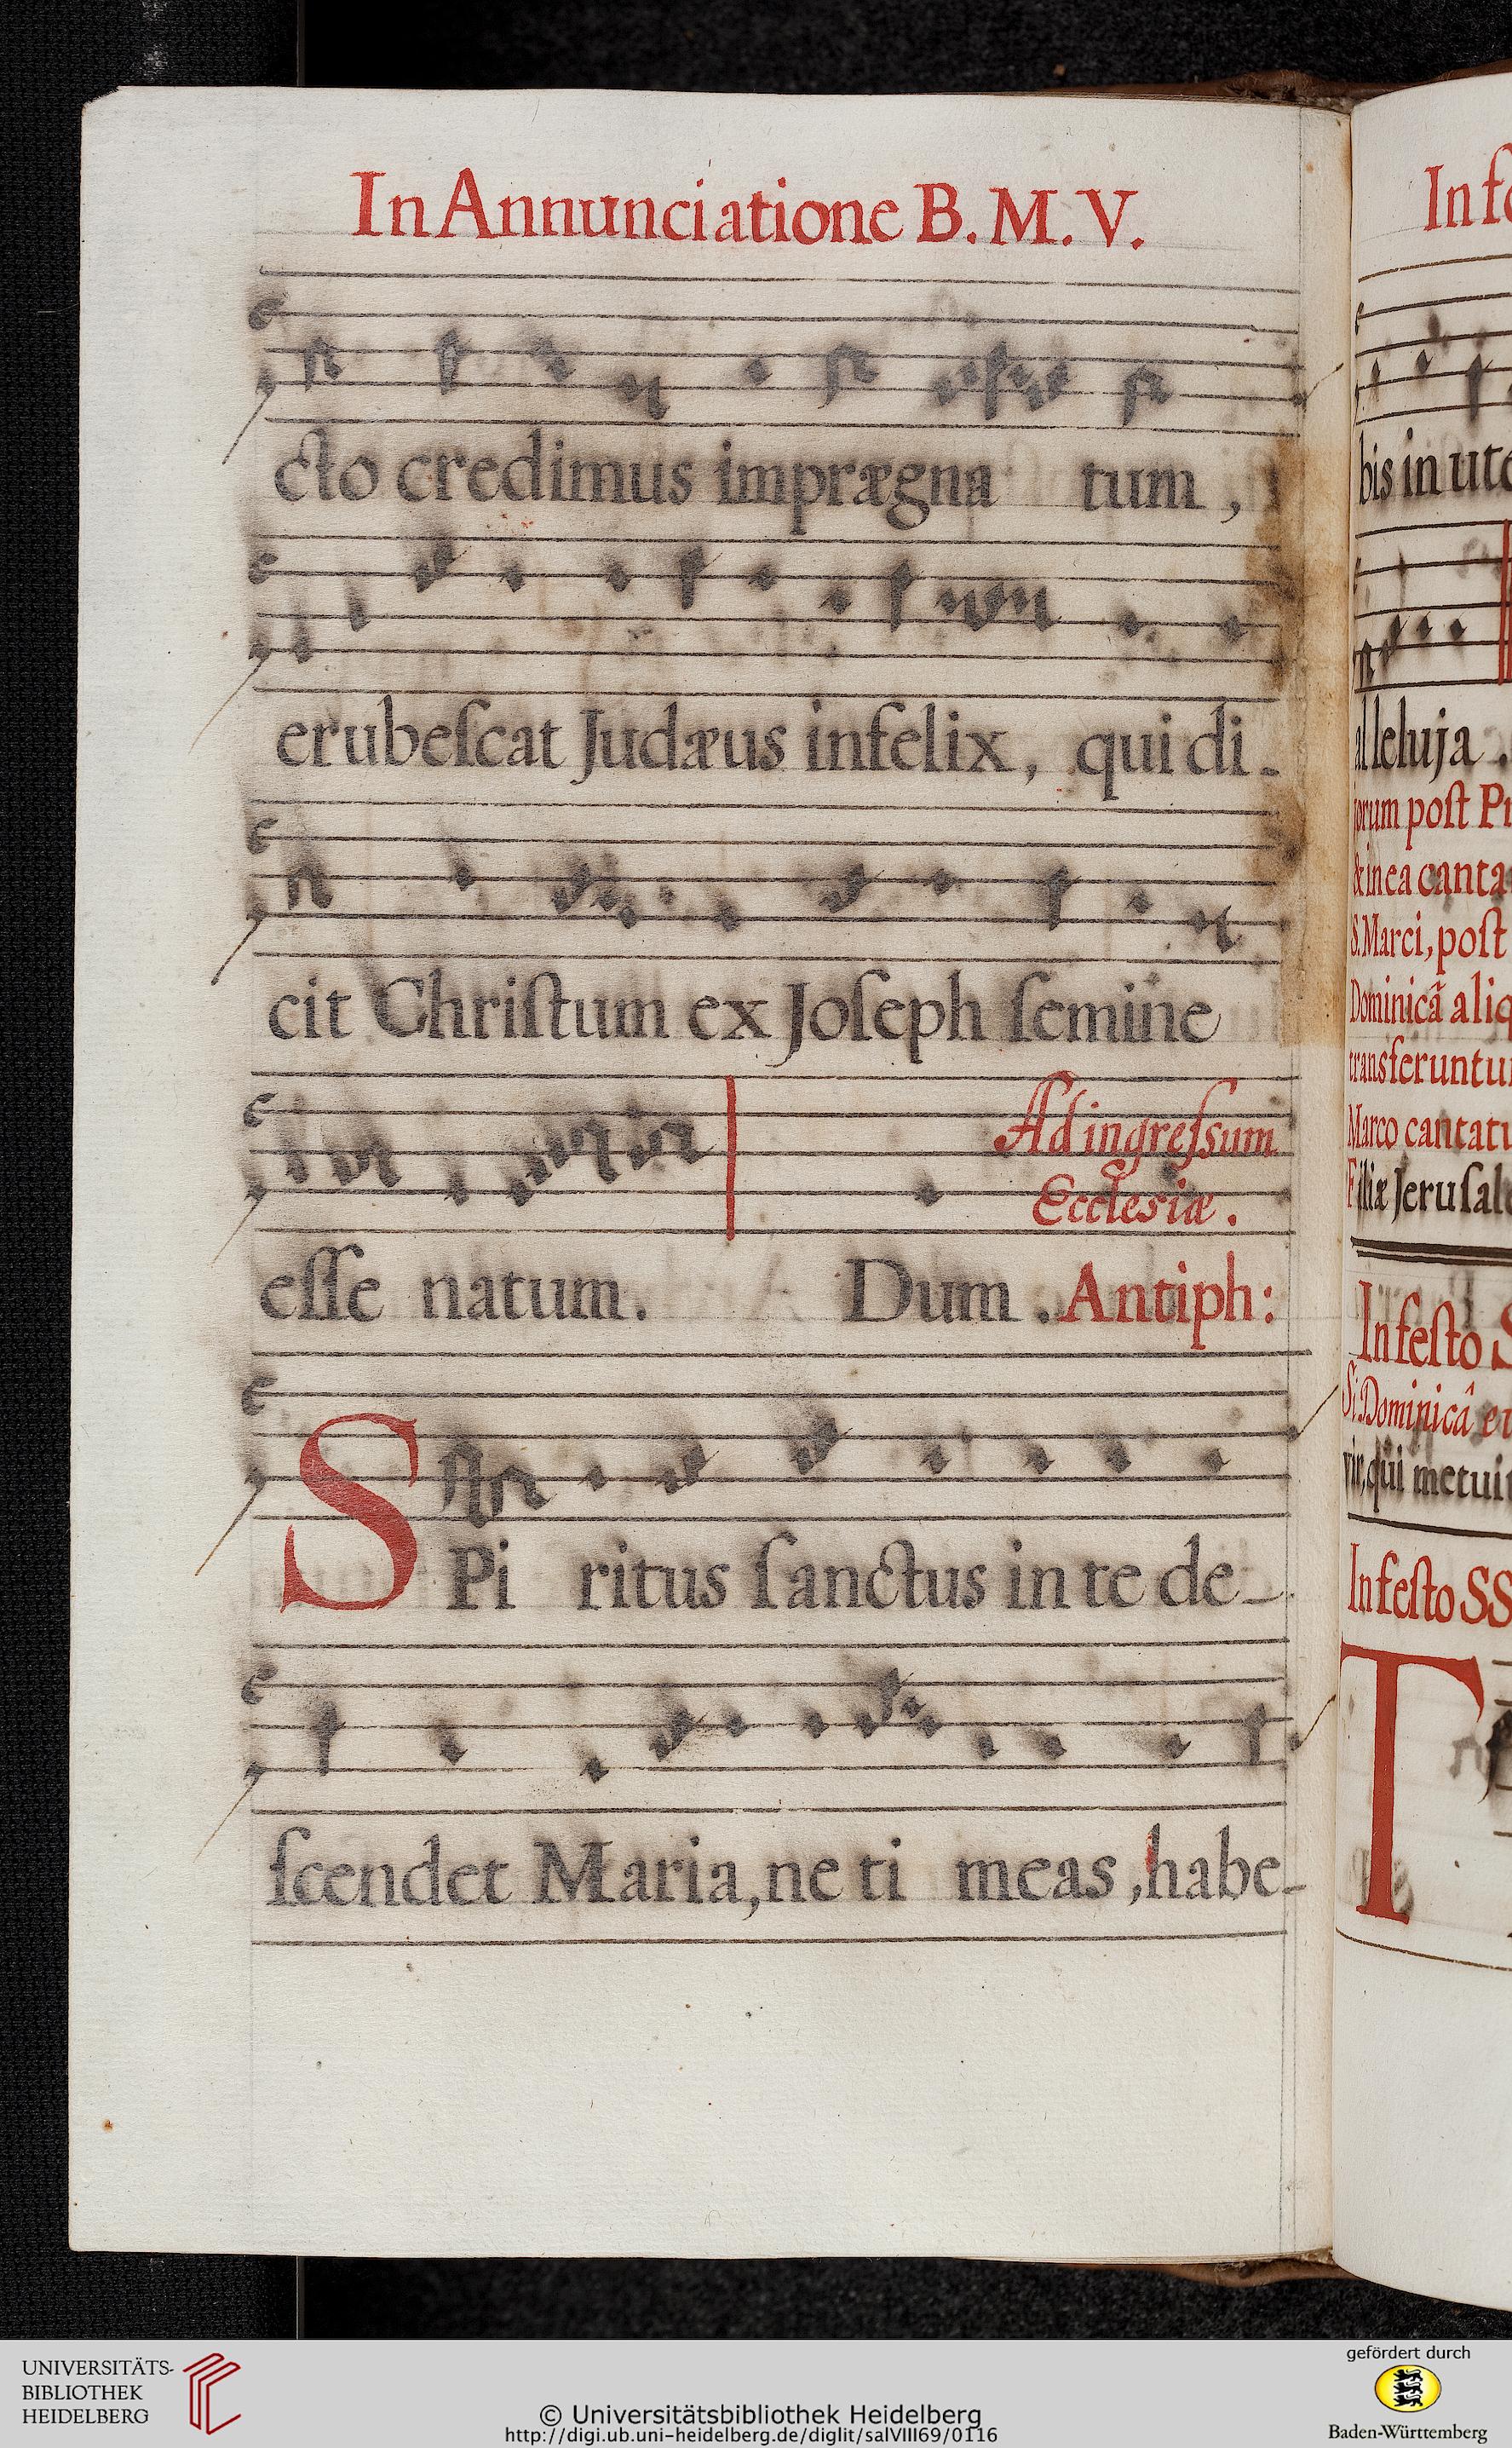 In Annunciatione B. M. V.
cto credimus imprægna tum,
erubeſcat Judæus infelix, qui di-
cit Chriſtum ex Joſeph ſemine
Ad ingreſsum
Ecclesiæ.
eſſe natum. Dum. Antiph:
SPi ritus ſanctus in te de-
ſcendet Maria, ne ti meas, habe-
In fe
bis in ute
alleluja.
jorum poſt
& in ea canta
S. Marci, poſt
Dominicã aliq
transferuntu
Marco cantatu
Filiæ Jeruſal
In feſto S
Si Dominicâ
vir, qui metuit
In feſto SS
T
UNIVERSITÄTS-
BIBLIOTHEK
HEIDELBERG
© Universitätsbibliothek Heidelberg
http://digi.ub.uni-heidelberg.de/diglit/salVIII69/0116
gefördert durch
Baden-Württemberg